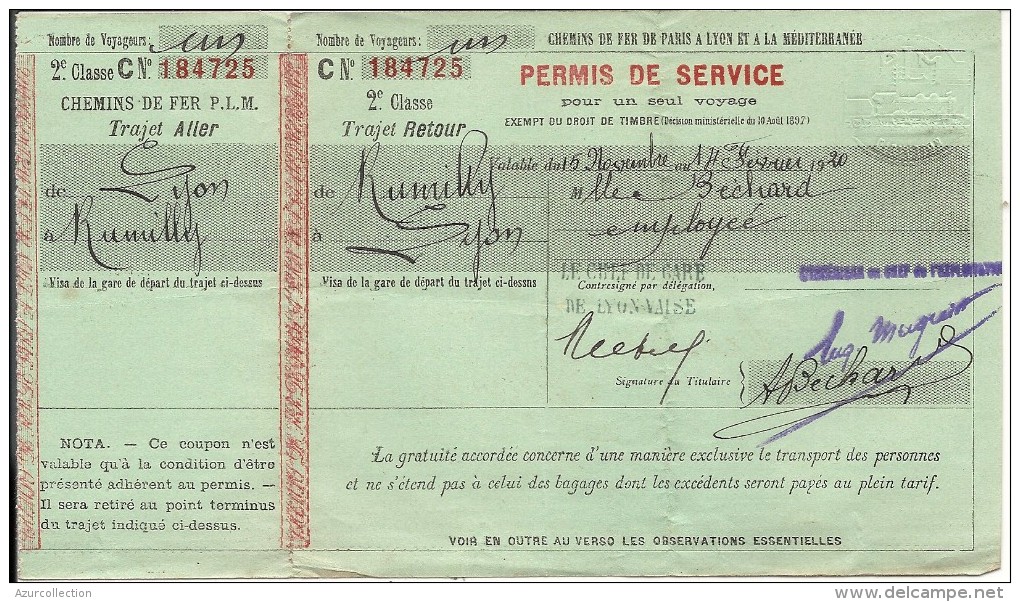 Nombre de Voyageurs: un
2e Classe C No 184725
CHEMINS DE FER P.L.M.
Trajet Aller
de Lyon
à Rumilly
Visa de la gare de départ du trajet ci-dessus
NOTA. — Ce coupon n'est
valable qu'à la condition d'être
présenté adhérent au permis. —
Il sera retiré au point terminus
du trajet indiqué ci-dessus.
Nombre de Voyageurs: un
C No 184725
2e Classe
Trajet Retour
de Rumilly
à Lyon
Visa de la gare de départ du trajet ci-dessns
CHEMINS DE FER DE PARIS A LYON ET A LA MÉDITERRANÉE
PERMIS DE SERVICE
pour un seul voyage
EXEMPT DU DROIT DE TIMBRE (Décision ministérielle du 10 Août 1897)
Valable du 15 Novembre au 14 Février 1920
Mlle Bechard
employée
LE CHEF DE GARE
Contresigné par délégation,
DE LYON-VAISE
Signature du Titulaire
ABechard
La gratuité accordée concerne d'une manière exclusive le transport des personnes
et ne s'étend pas à celui des bagages dont les excédents seront payés au plein tarif.
VOIR EN OUTRE AU VERSO LES OBSERVATIONS ESSENTIELLES
Azurcollection
delcampe.net